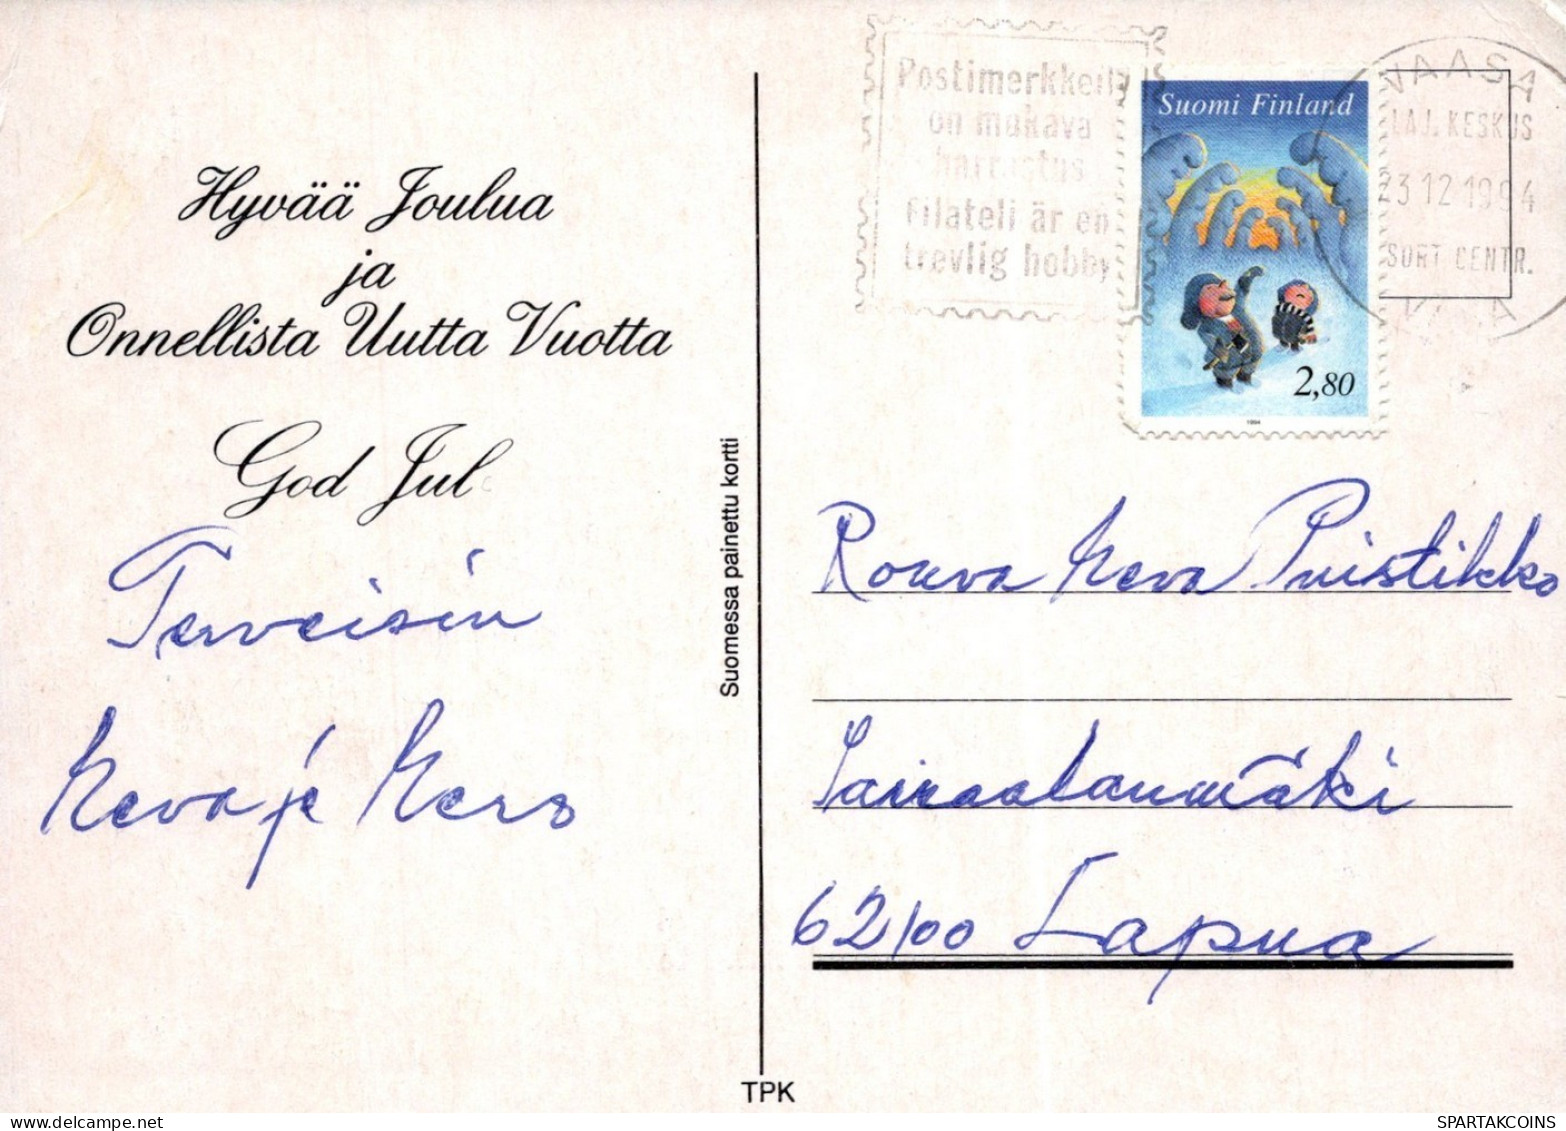 Hyvää Joulua
ja
Onnellista Uutta Vuotta
God Jul
Terveisin
ja Eero
Suomessa painettu kortti
TPK
Postimerkkeily
on mukava
harrastus
Filateli är en
trevlig hobby
Suomi Finland
2,80
1994
VAASA
LAJ. KESKUS
23.12.1994
SORT.CENTR.
VASA
Rouva Puistikko
Sairaalanmäki
62100 Lapua
SPARTAKCOINS